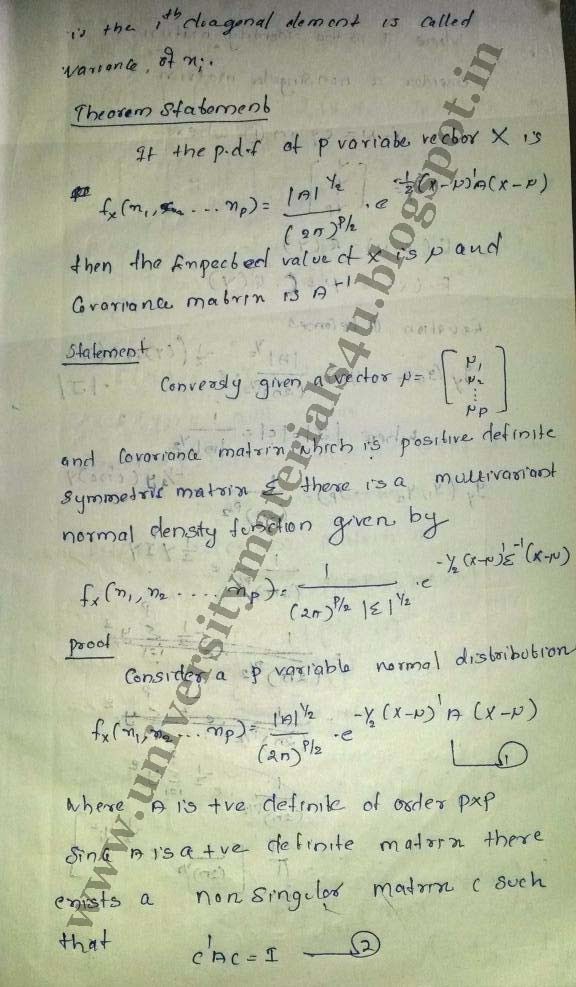 is the iᵗʰ diagonal element is called
variance, of xᵢ.
Theorem Statement
If the p.d.f of p variate vector X is
fₓ(x₁, ... xₚ) = |A|^½ / (2π)^{p/2} . e^{-½(x-μ)'A(x-μ)}
then the Expected value of x is μ and
Covariance matrix is A⁻¹
Statement
Conversly given, a vector μ = [μ₁ μ₂ ⋮ μp]
and Covariance matrix which is positive definite
symmetric matrix Σ there is a multivariant
normal density function given by
fₓ(x₁, x₂ .... xₚ) = 1 / (2π)^{p/2} |Σ|^½ . e^{-½(x-μ)'Σ⁻¹(x-μ)}
Proof
Consider a p variable normal distribution
fₓ(x₁, x₂ ... xₚ) = |A|^½ / (2π)^{p/2} . e^{-½(x-μ)'A(x-μ)}
①
where A is +ve definite of order pxp
Sinc A is a +ve definite matrix there
exists a non singular matrix C such
that C'AC = I — ②
www.universitymaterials4u.blogspot.in